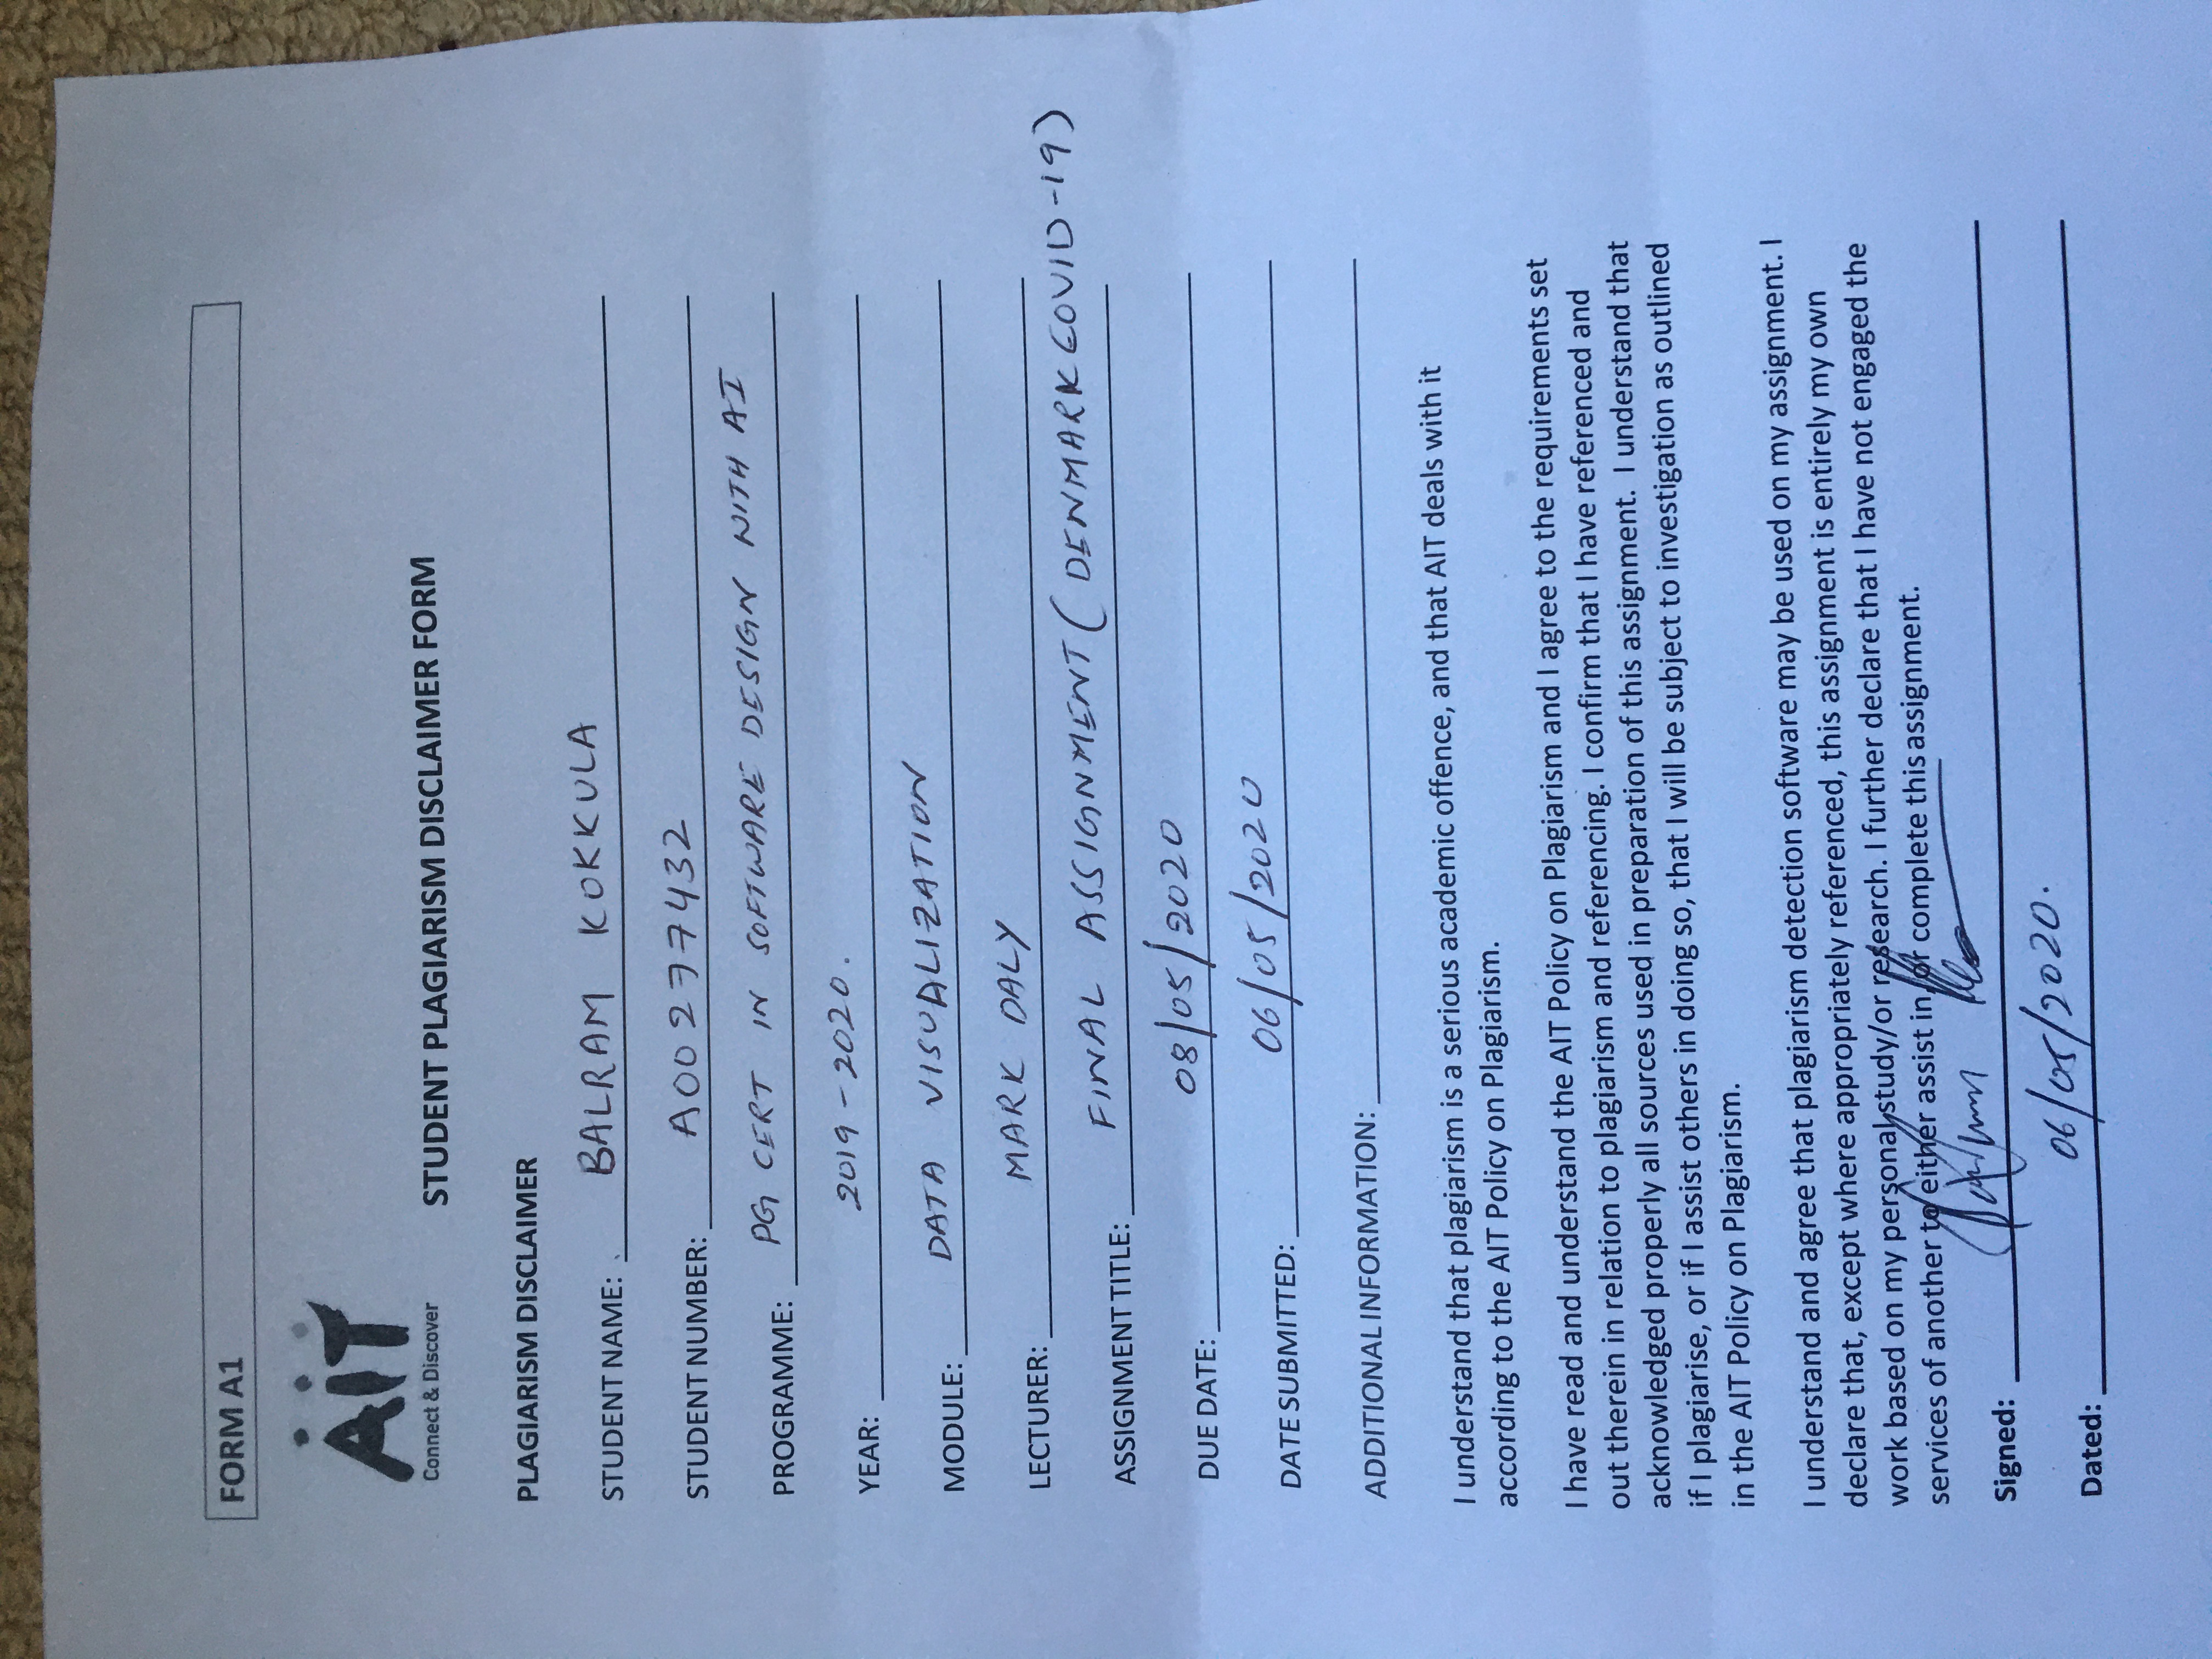 FORM A1
AIT
Connect & Discover
STUDENT PLAGIARISM DISCLAIMER FORM
PLAGIARISM DISCLAIMER
STUDENT NAME: BALRAM KOKKULA
STUDENT NUMBER: A00277432
PROGRAMME: PG CERT IN SOFTWARE DESIGN WITH AI
YEAR: 2019-2020.
MODULE: DATA VISUALIZATION
LECTURER: MARK DALY
ASSIGNMENT TITLE: FINAL ASSIGNMENT (DENMARK COVID-19)
DUE DATE: 08/05/2020
DATE SUBMITTED: 06/05/2020
ADDITIONAL INFORMATION:
I understand that plagiarism is a serious academic offence, and that AIT deals with it
according to the AIT Policy on Plagiarism.
I have read and understand the AIT Policy on Plagiarism and I agree to the requirements set
out therein in relation to plagiarism and referencing. I confirm that I have referenced and
acknowledged properly all sources used in preparation of this assignment. I understand that
if I plagiarise, or if I assist others in doing so, that I will be subject to investigation as outlined
in the AIT Policy on Plagiarism.
I understand and agree that plagiarism detection software may be used on my assignment. I
declare that, except where appropriately referenced, this assignment is entirely my own
work based on my personal study/or research. I further declare that I have not engaged the
services of another to either assist in, or complete this assignment.
Signed:
Dated: 06/05/2020.